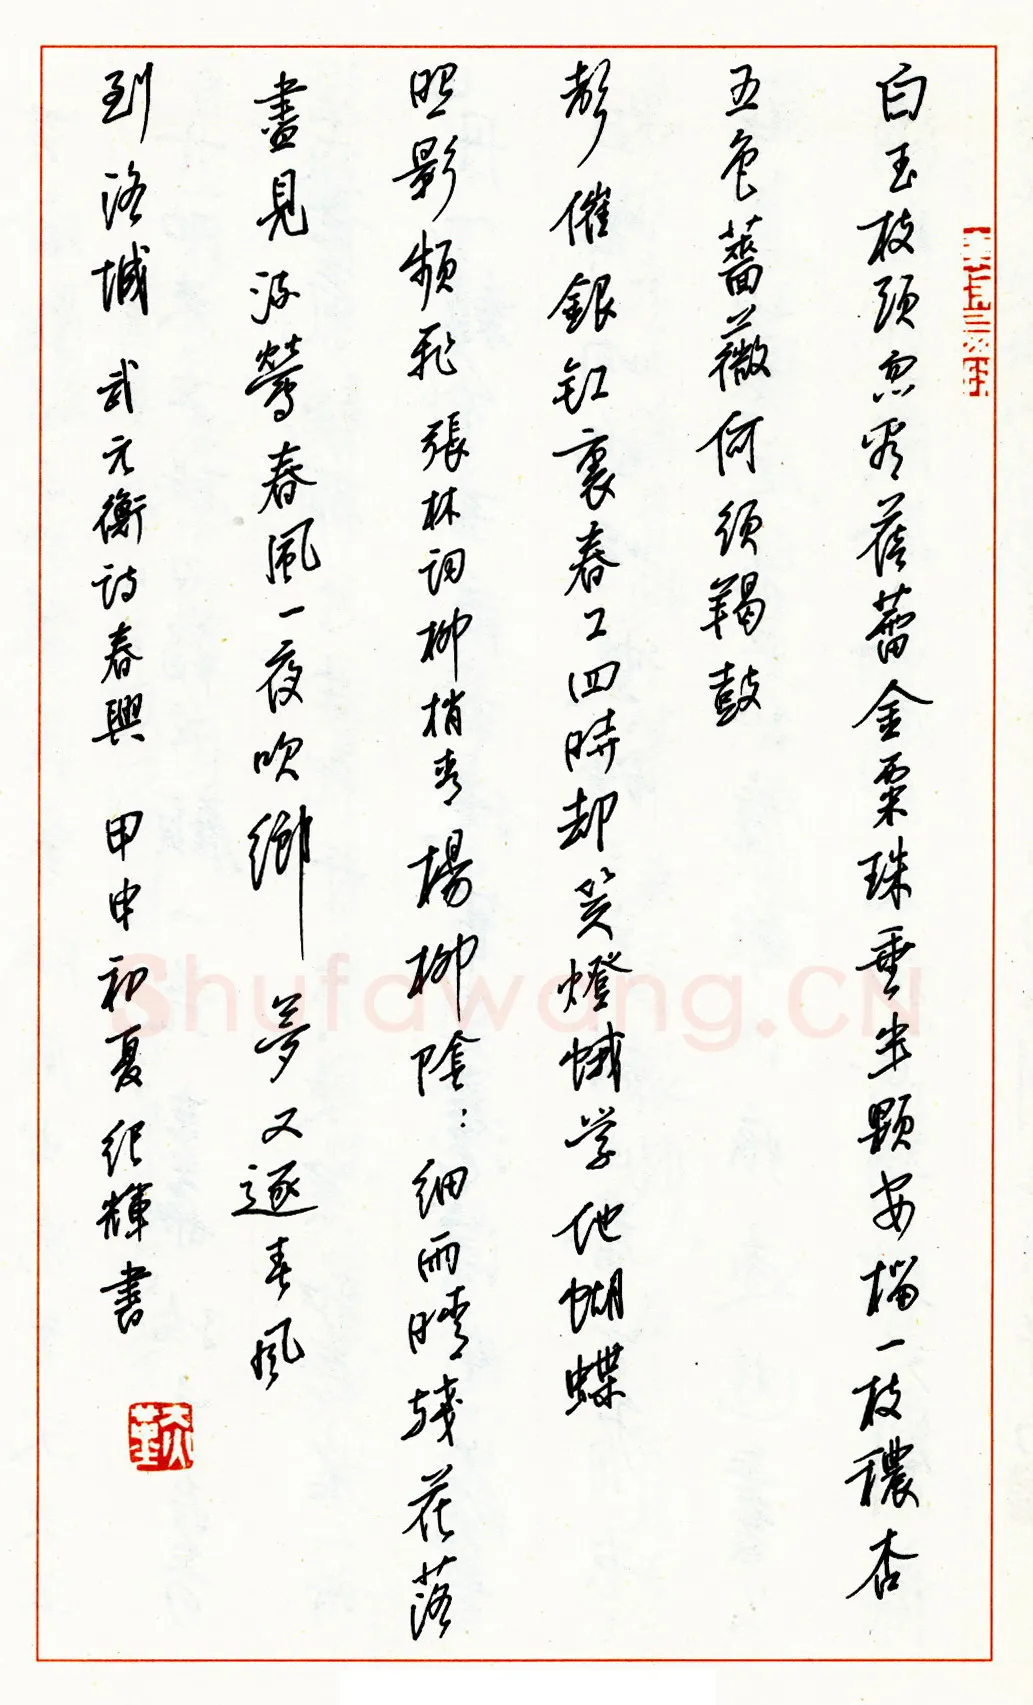 白玉枝頭忽看蓓蕾金粟珠垂半顆安榴一枝穠杏
五色薔薇何須羯鼓
聲催銀釭裏春工四時却笑燈蛾学他蝴蝶
照影頻飛 張林词柳梢青 楊柳陰：細雨晴殘花落
盡見流鶯春風一夜吹鄉夢又逐春風
到洛城 武元衡诗春興 甲申初夏纪輝書
Shufawang.CN